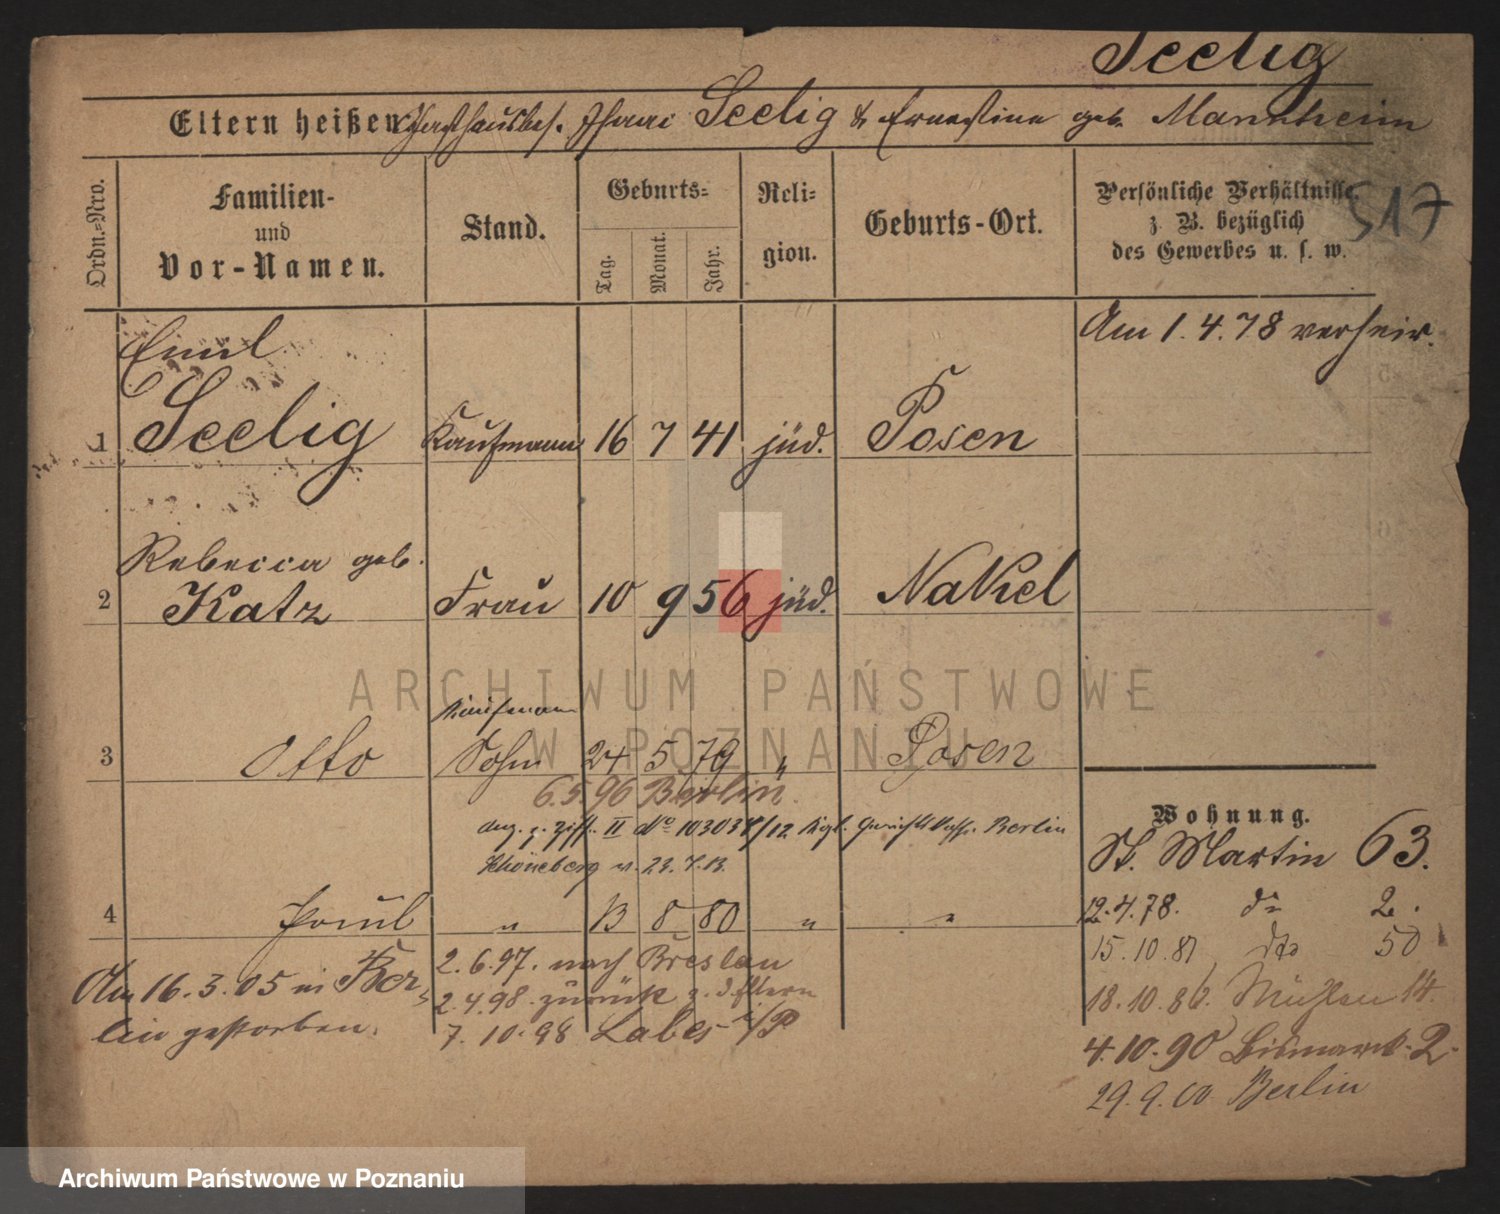 Seelig
Eltern heißen Gasthausbes. Isaac Seelig & Ernestine geb. Mannheim
Ordn.=Nro.
Familien-
und
Vor-Namen.
Stand.
Geburts=
Tag.
Monat.
Jahr.
Reli=
gion.
Geburts-Ort.
Persönliche Verhältnisse
z. B. bezüglich
des Gewerbes u. s. w.
517
Am 1.4.78 verheir.
Emil
1 Seelig Kaufmann 16 7 41 jüd. Posen
Rebecca geb.
2 Katz Frau 10 9 56 jüd. Nakel
Kaufmann
3 Otto Sohn 24 5 79 " Posen
6.5.96 Berlin.
II No 10303 /12 Kgl. Berlin
Schöneberg v. 23.4.13.
4 Paul " 13 8 80 " "
2.6.97. nach Breslau
2.4.98. zurück z. d. Eltern
7.10.98 Labes i/P
Am 16.3.05 in Ber-
lin gestorben.
Wohnung.
St. Martin 63.
12.4.78. do 2.
15.10.81 dto 50
18.10.86. Mühlen 14.
4.10.90 Bismarck. 2.
29.9.00 Berlin
ARCHIWUM PAŃSTWOWE
W POZNANIU
Archiwum Państwowe w Poznaniu